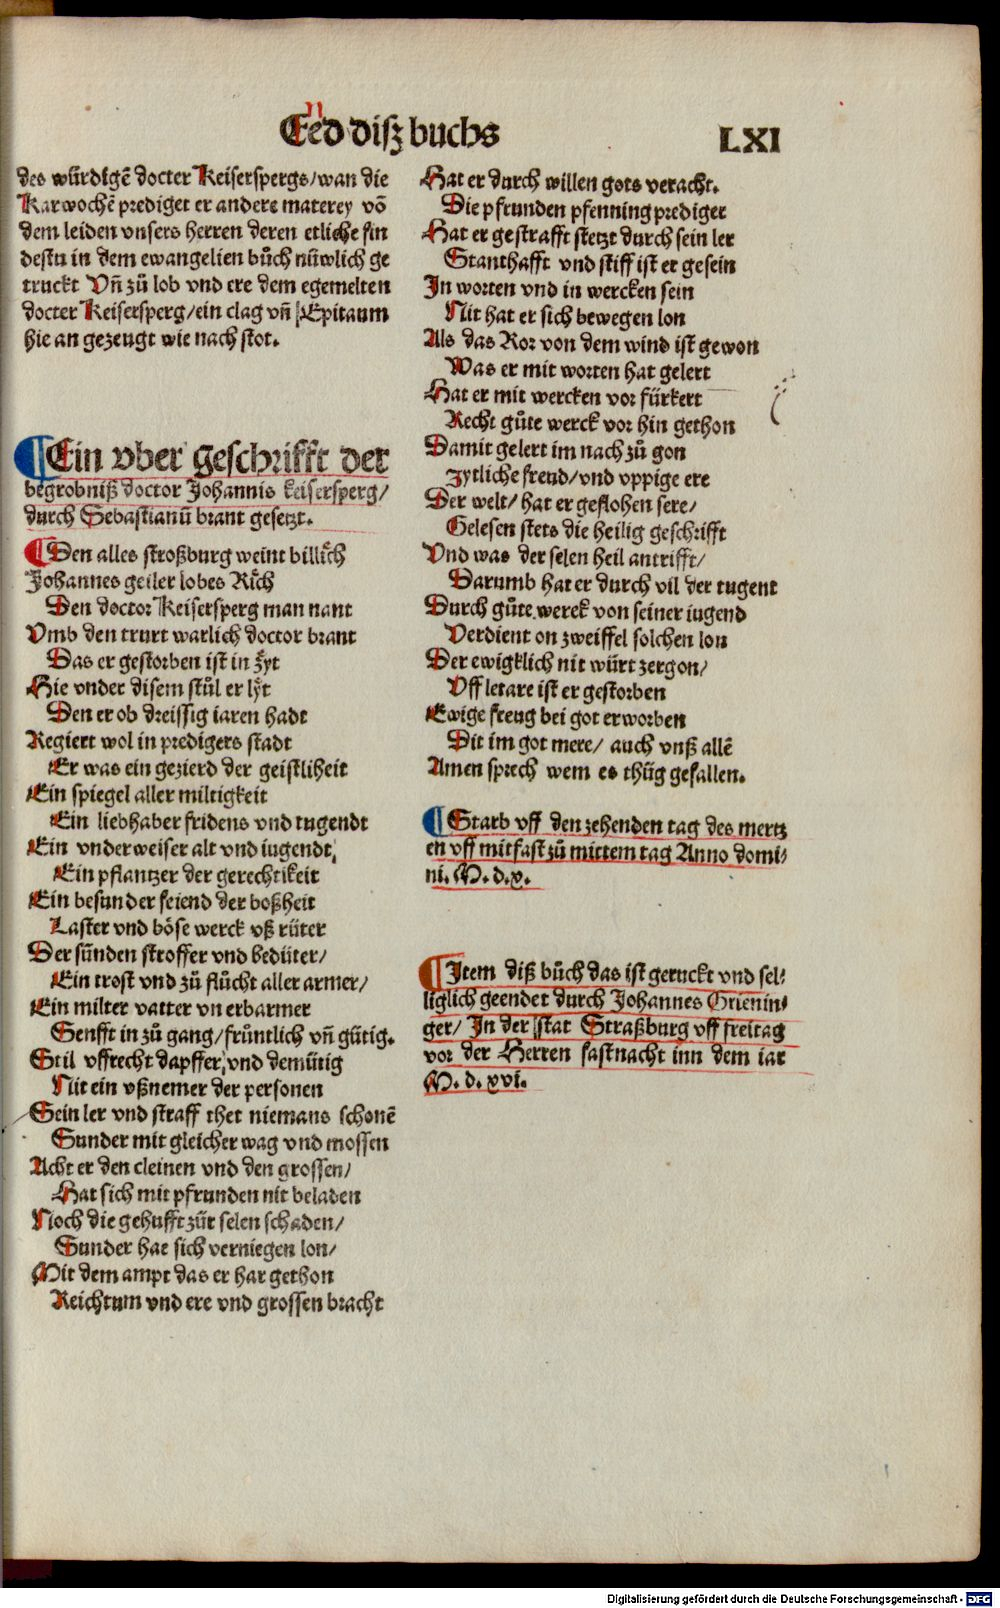 Eed diſz buchs
LXI
des würdigē docter Keiserspergs/wan die
Karwochē prediget er andere materey vō
dem leiden vnsers herren deren etliche fin
destu in dem ewangelien bůch nüwlich ge
truckt Vn̄ zů lob vnd ere dem egemelten
docter Keisersperg/ein clag vn̄ Epitaum
hie an gezeugt wie nach stot.
¶Ein vber geschrifft der
begrobniß doctor Johannis keisersperg/
durch Sebastianū brant gesetzt.
¶Den alles stroßburg weint billich
Johannes geiler lobes Rich
Den doctor Keisersperg man nant
Vmb den trurt warlich doctor brant
Das er gestorben ist in zyt
Hie vnder disem stůl er lyt
Den er ob dreissig iaren hadt
Regiert wol in predigers stadt
Er was ein gezierd der geistliheit
Ein spiegel aller miltigkeit
Ein liebhaber fridens vnd tugendt
Ein vnderweiser alt vnd iugendt,
Ein pflantzer der gerechtikeit
Ein besunder feiend der boßheit
Laster vnd böse werck vß rüter
Der sünden stroffer vnd bedüter/
Ein trost vnd zů flůcht aller armer/
Ein milter vatter vn erbarmer
Senfft in zů gang/früntlich vn̄ gütig.
Stil vffrecht dapffer, vnd demütig
Nit ein vßnemer der personen
Sein ler vnd straff thet niemans schonē
Sunder mit gleicher wag vnd mossen
Acht er den cleinen vnd den grossen/
Hat sich mit pfrunden nit beladen
Noch die gehufft zůr selen schaden/
Sunder hae sich verniegen lon/
Mit dem ampt das er har gethon
Reichtum vnd ere vnd grossen bracht
Hat er durch willen gots veracht.
Die pfrunden pfenning prediger
Hat er gestrafft stetzt durch sein ler
Stanthafft vnd stiff ist er gesein
In worten vnd in wercken sein
Nit hat er sich bewegen lon
Als das Ror von dem wind ist gewon
Was er mit worten hat gelert
Hat er mit wercken vor fürkert
Recht gůte werck vor hin gethon
Damit gelert im nach zů gon
zytliche freud/vnd vppige ere
Der welt/ hat er geflohen sere/
Gelesen stets die heilig geschrifft
Vnd was der selen heil antrifft/
Darumb hat er durch vil der tugent
Durch gůte werck von seiner iugend
Verdient on zweiffel solchen lon
Der ewigklich nit würt zergon/
Vff letare ist er gestorben
Ewige freug bei got erworben
Dit im got mere/ auch vnß allē
Amen sprech wem es thüg gefallen.
¶Starb vff den zehenden tag des mertz
en vff mitfast zů mittem tag Anno domi-
ni. M. d.x.
¶Item diß bůch das ist getuckt vnd sel-
liglich geendet durch Johannes Grienin-
ger/ In der stat Straßburg vff freitag
vor der Herren fastnacht inn dem iar
M. d. xvi.
Digitalisierung gefördert durch die Deutsche Forschungsgemeinschaft - DFG